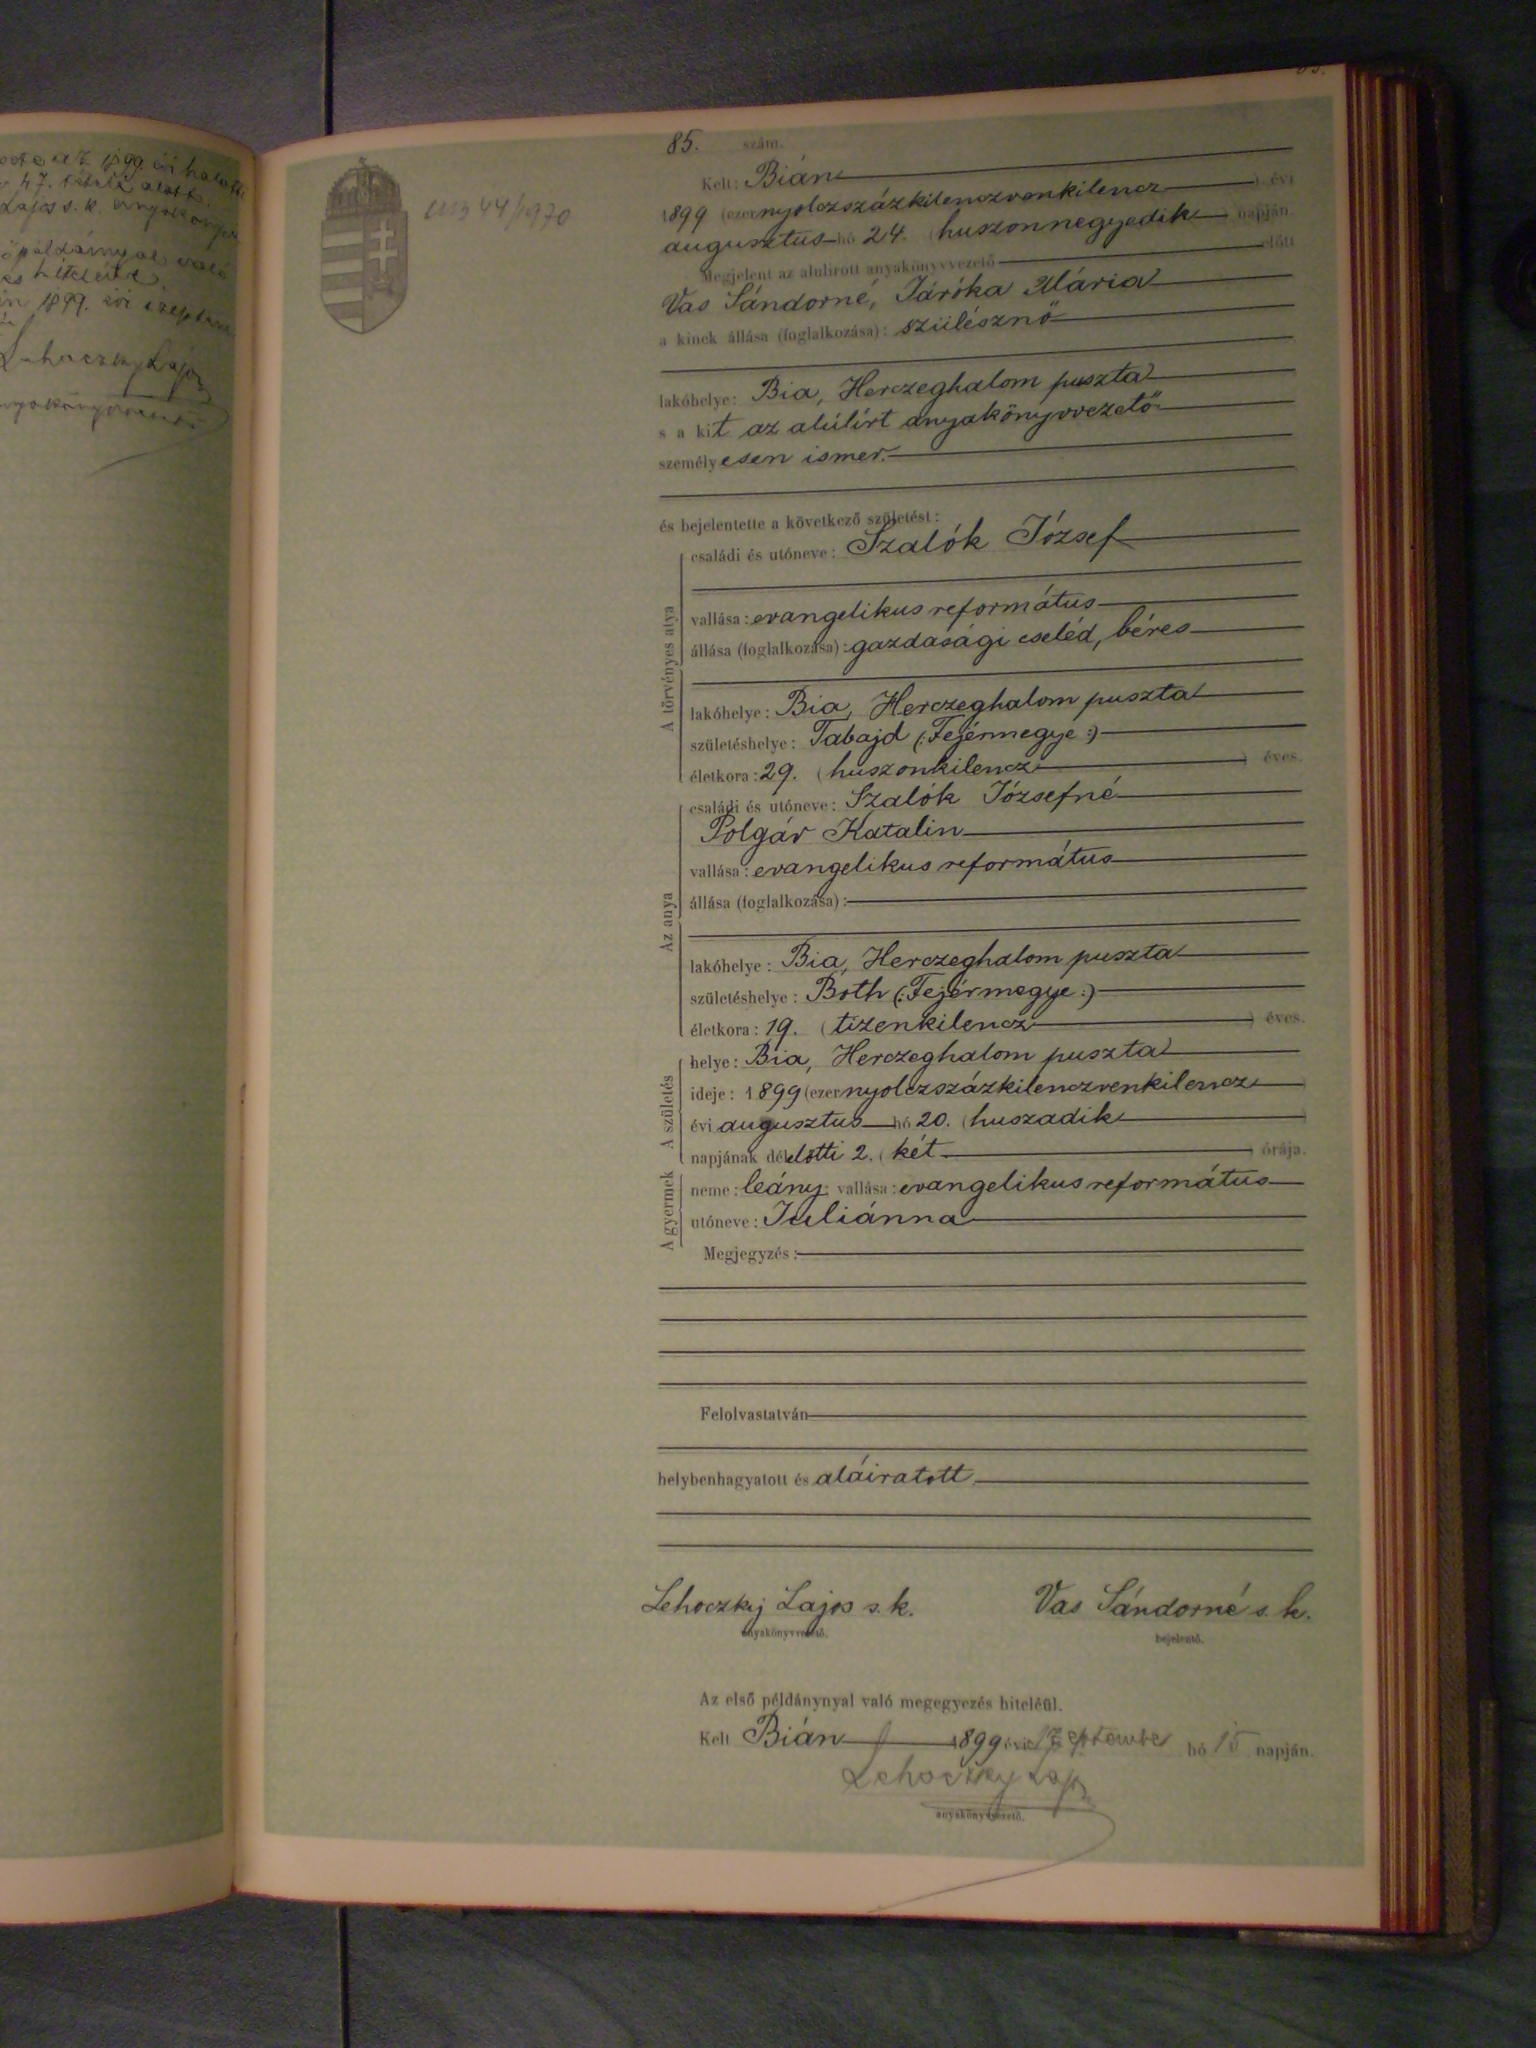 az 1899. évi halotti
47. tétele alatt.
Lajos s. k. anyakönyv
példánnyal való
és hiteléül.
1899. évi szeptem
Lehoczky Lajos
anyakönyvvezető
85. szám.
Kelt: Bián
1899 (ezernyolczszázkilenczvenkilencz) évi
augusztus hó 24. (huszonnegyedik) napján
Megjelent az alulirott anyakönyvvezető előtt
Vas Sándorné, Járóka Mária
a kinek állása (foglalkozása): szülésznő
lakóhelye: Bia, Herczeghalom puszta
s a kit az alúlírt anyakönyvvezető
személyesen ismer.
és bejelentette a következő születést:
A törvényes atya
családi és utóneve: Szalók József
vallása: evangelikus református
állása (foglalkozása): gazdasági cseléd, béres
lakóhelye: Bia, Herczeghalom puszta
születéshelye: Tabajd (:Fejérmegye:)
életkora: 29. (huszonkilencz) éves.
Az anya
családi és utóneve: Szalók Józsefné
Polgár Katalin
vallása: evangelikus református
állása (foglalkozása):
lakóhelye: Bia, Herczeghalom puszta
születéshelye: Bóth (:Fejérmegye:)
életkora: 19. (tizenkilencz) éves.
A születés
helye: Bia, Herczeghalom puszta
ideje: 1899 (ezernyolczszázkilenczvenkilencz)
évi augusztus hó 20. (huszadik)
napjának délelőtti 2. (két) órája.
A gyermek
neme: leány; vallása: evangelikus református
utóneve: Juliánna
Megjegyzés:
Felolvastatván
helybenhagyatott és aláiratott
Lehoczky Lajos s. k. Vas Sándorné s. k.
anyakönyvvezető. bejelentő.
Az első példánynyal való megegyezés hiteléül.
Kelt Bián 1899 évi szeptember hó 15 napján.
Lehoczky Lajos
anyakönyvvezető.